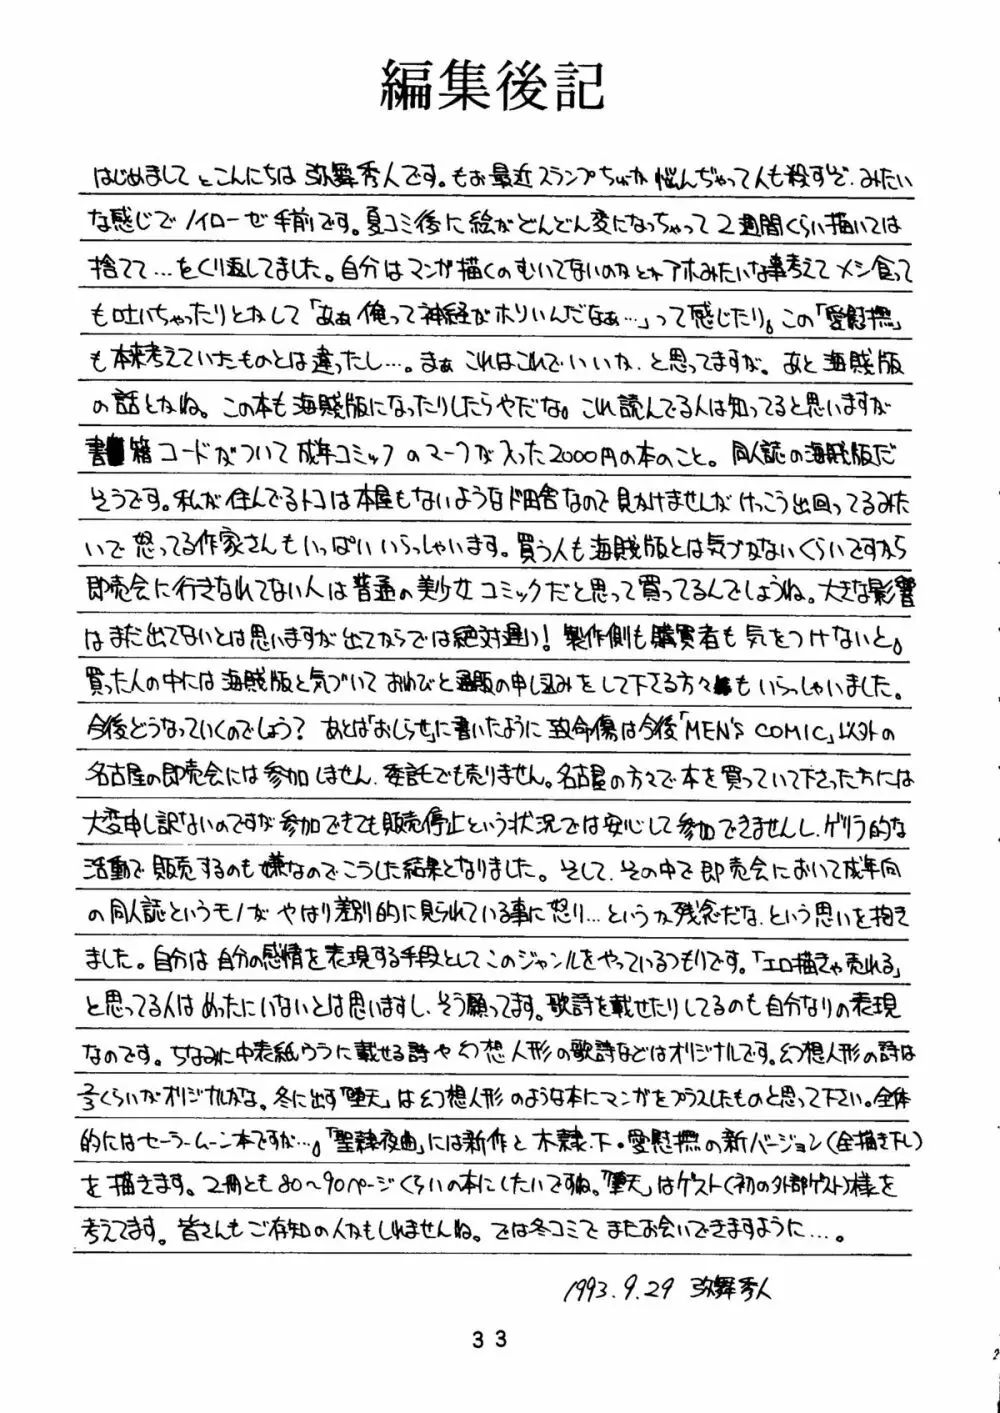 編集後記
はじめましてとこんにちは 弥舞秀人です。もお最近スランプちゅうか 悩んぢゃって人も殺すぞ、みたい
な感じでノイローゼ手前です。夏コミ後に絵がどんどん変になっちゃって2週間くらい描いては
捨てて…をくり返してました。自分はマンガ描くのむいてないのかとかアホみたいな事考えてメシ食って
も吐いちゃったりとかして「あぁ俺って神経がホソいんだなぁ…」って感じたり。この「愛慰撫」
も本来考えていたものとは違ったし…。まぁ これはこれでいいか、と思ってますが。あと 海賊版
の話とかね。この本も海賊版になったりしたらやだな。これ読んでる人は知ってると思いますが
書籍コードがついて成年コミックのマークが入った2000円の本のこと。同人誌の海賊版だ
そうです。私が住んでるトコは本屋もないようなド田舎なので見かけませんがけっこう出回ってるみた
いで怒ってる作家さんもいっぱいいらっしゃいます。買う人も海賊版とは気づかないくらいですから
即売会に行きなれてない人は普通の美少女コミックだと思って買ってるんでしょうね。大きな影響
はまだ出てないとは思いますが出てからでは絶対遅い!製作側も購買者も気をつけないと。
買った人の中には海賊版と気づいておわびと通販の申し込みをして下さる方々もいらっしゃいました。
今後どうなっていくのでしょう? あとは「おしらせ」に書いたように致命傷は今後「MEN'S COMIC」以外の
名古屋の即売会には参加しません、委託でも売りません。名古屋の方々で本を買っていて下さった方には
大変申し訳ないのですが参加できても販売停止という状況では安心して参加できませんし、ゲリラ的な
活動で販売するのも嫌なのでこうした結果となりました。そして、その中で即売会において成年向
の同人誌というモノがやはり差別的に見られている事に怒り…というか残念だな、という思いを抱き
ました。自分は自分の感情を表現する手段としてこのジャンルをやっているつもりです。「エロ描きゃ売れる」
と思ってる人はめったにいないとは思いますし、そう願ってます。歌詩を載せたりしてるのも自分なりの表現
なのです。ちなみに中表紙ウラに載せる詩や幻想人形の歌詩などはオリジナルです。幻想人形の詩は
2/3くらいがオリジナルかな。冬に出す「堕天」は幻想人形のような本にマンガをプラスしたものと思って下さい。全体
的にはセーラームーン本ですが…。「聖隷夜曲」には新作と 木隷.下・愛慰撫の新バージョン(全描き下し)
を描きます。2冊とも80〜90ページくらいの本にしたいですね。「堕天」はゲスト(初の外部ゲスト)様を
考えてます。皆さんもご存知の人かもしれませんね。では冬コミでまたお会いできますように…。
1993.9.29 弥舞秀人
33